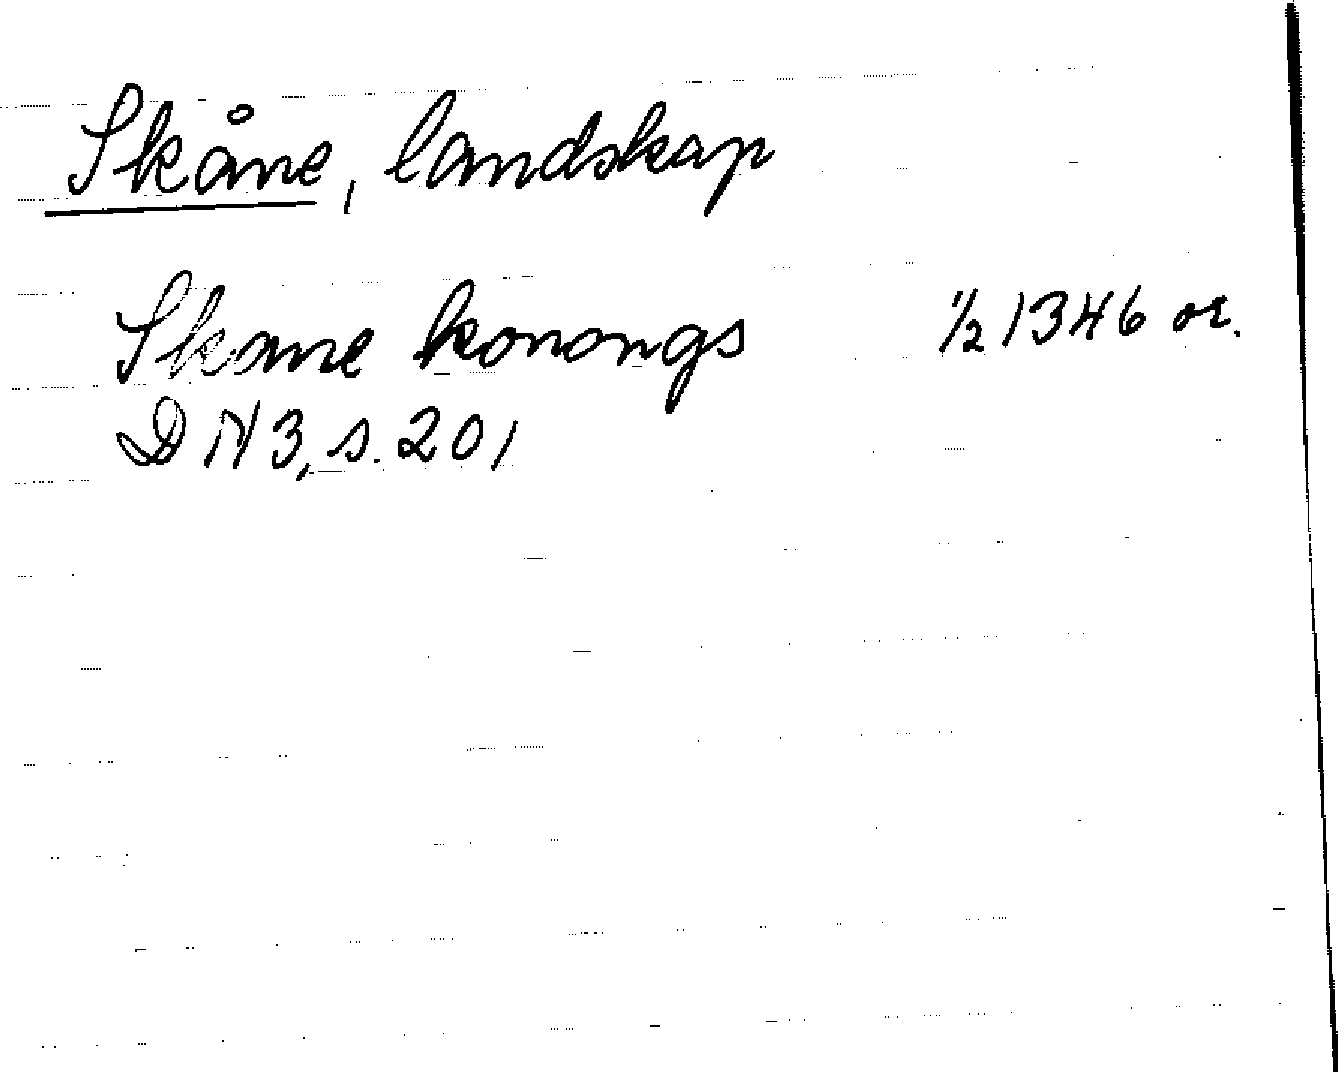 Skåne, landskap
Skane konongs 1/2 1346 or.
DN 3, s. 201